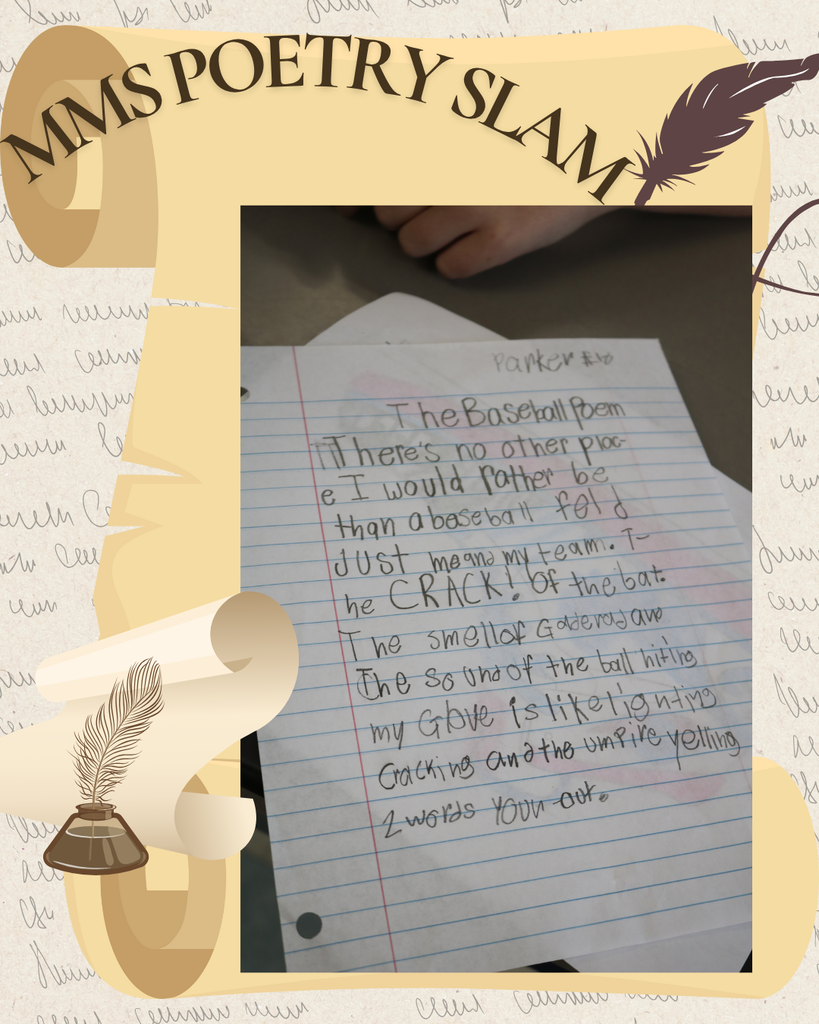 MMS POETRY SLAM
Parker
The Baseball Poem
There's no other plac-
e I would rather be
than a baseball feld
JUST me and my team. T-
he CRACK! Of the bat.
The smell of
The sound of the ball hiting
my Glove is like lighting
Cracking and the umpire yelling
2 words out.